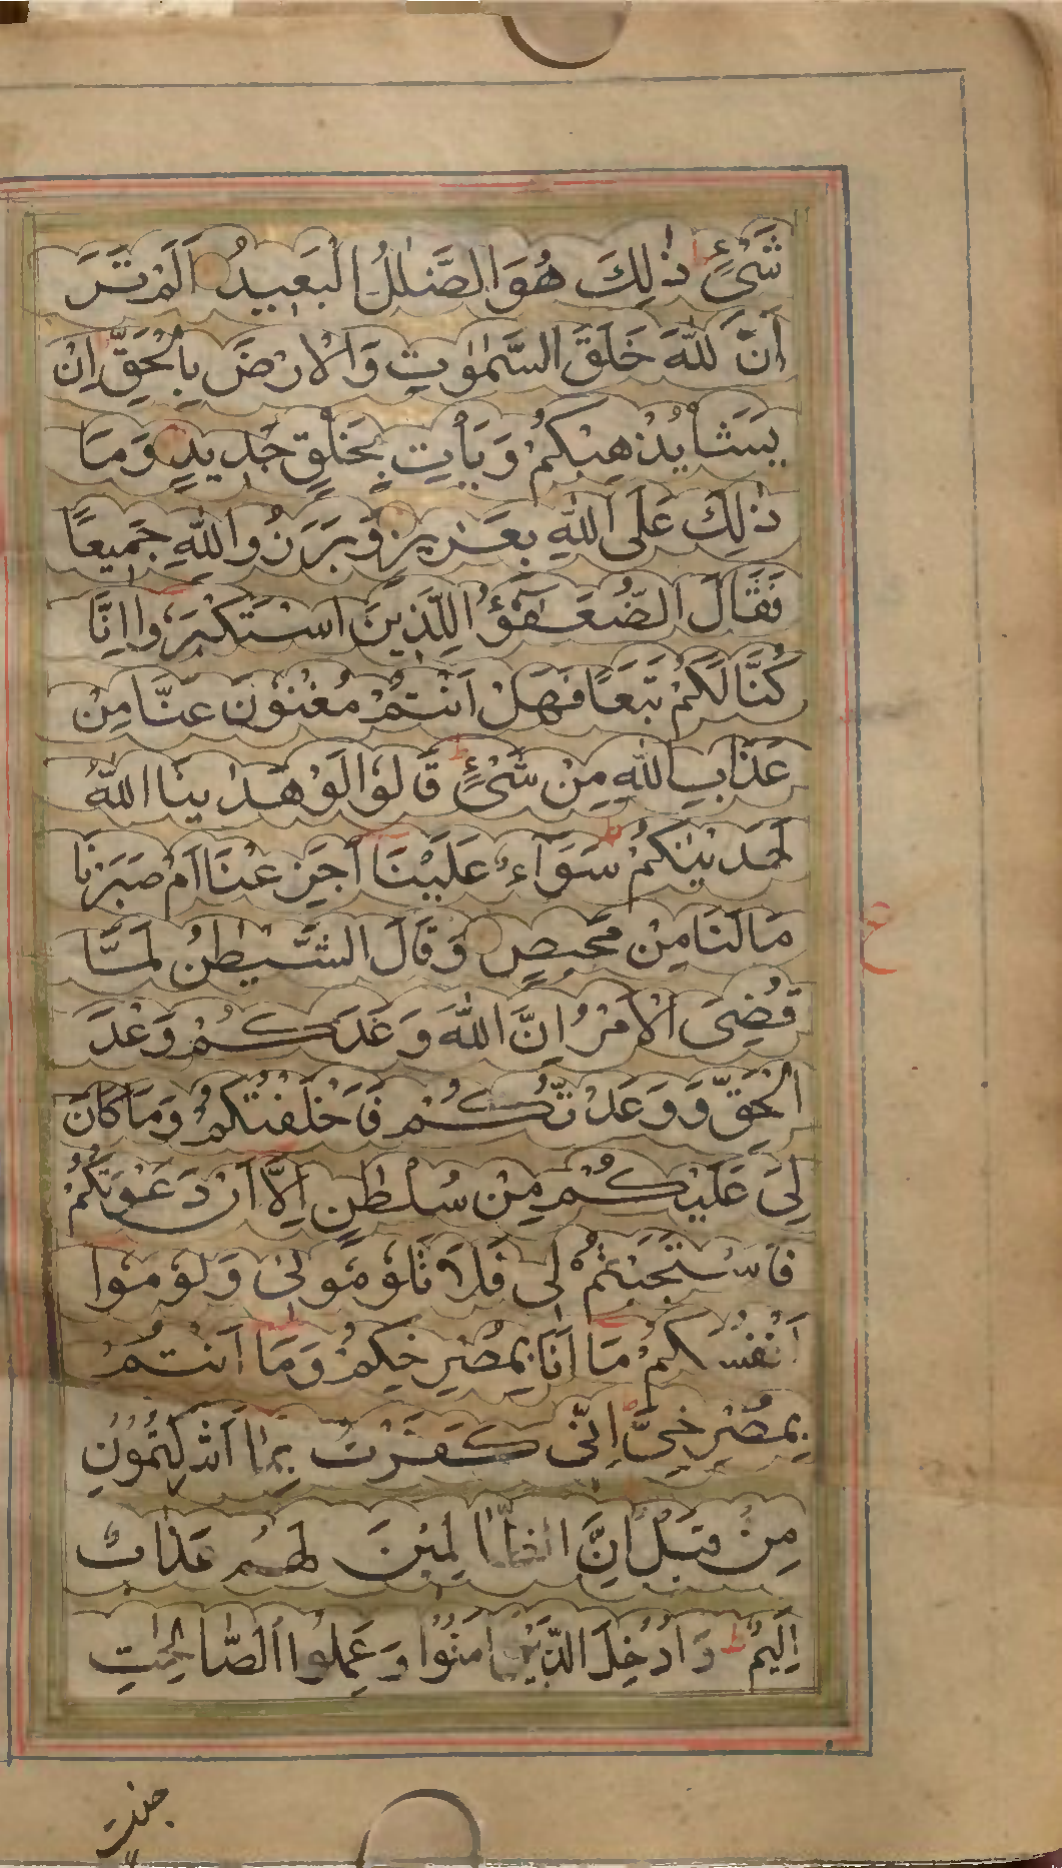 شَیْءٍ ط ذٰلِكَ هُوَ الضَّلٰلُ الْبَعِیدُ اَلَمْ تَرَ
اَنَّ للهَ خَلَقَ السَّمٰوٰتِ وَالْاَرْضَ بِالْحَقِّ اِنْ
یَشَاْ یُذْهِبْكُمْ وَیَاْتِ بِخَلْقٍ جَدِیدٍ وَمَا
ذٰلِكَ عَلَی اللهِ بِعَزِیزٍ وَبَرَزُوا للهِ جَمِیعًا
فَقَالَ الضُّعَفٰٓؤُا لِلَّذِینَ اسْتَكْبَرُوا اِنَّا
كُنَّا لَكُمْ تَبَعًا فَهَلْ اَنْتُمْ مُغْنُوْنَ عَنَّا مِنْ
عَذَابِ اللهِ مِنْ شَیْءٍ ط قَالُوا لَوْ هَدٰینَا اللهُ
لَهَدَیْنٰكُمْ ط سَوَآءٌ عَلَیْنَا اَجَزِعْنَا اَمْ صَبَرْنَا
مَا لَنَا مِنْ مَحِیصٍ وَقَالَ الشَّیْطٰنُ لَمَّا
ع
قُضِیَ الْاَمْرُ اِنَّ اللهَ وَعَدَكُمْ وَعْدَ
الْحَقِّ وَوَعَدْتُّكُمْ فَاَخْلَفْتُكُمْ وَمَا كَانَ
لِیَ عَلَیْكُمْ مِنْ سُلْطٰنٍ اِلَّا اَنْ دَعَوْتُكُمْ
فَاسْتَجَبْتُمْ لِی فَلَا تَلُوْمُوْنِی وَلُوْمُوا
اَنْفُسَكُمْ مَا اَنَا بِمُصْرِخِكُمْ وَمَا اَنْتُمْ
بِمُصْرِخِیَّ اِنِّی كَفَرْتُ بِمَا اَشْرَكْتُمُوْنِ
مِنْ قَبْلُ اِنَّ الظّٰلِمِیْنَ لَهُمْ عَذَابٌ
اَلِیْمٌ ط وَاُدْخِلَ الَّذِیْنَ اٰمَنُوْا وَعَمِلُوا الصَّالِحٰتِ
جنت